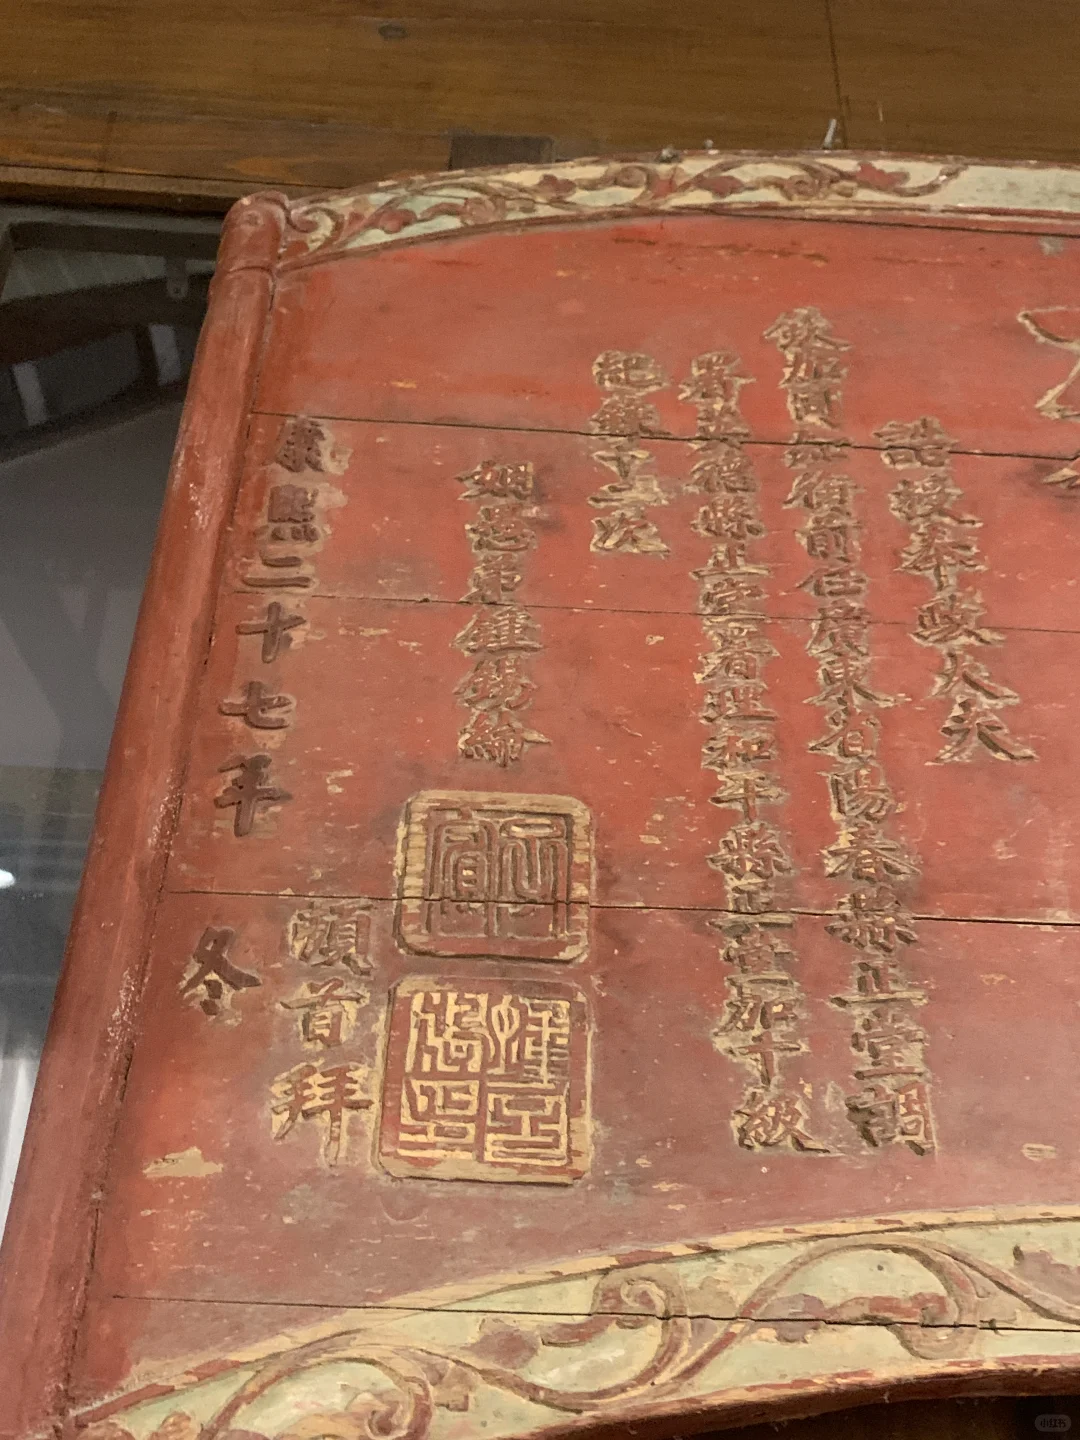 誥授奉政大夫
欽加同知銜前任廣東省陽春縣正堂調
署英德縣正堂署理和平縣正堂加十級
紀錄十二次
姻愚弟鍾錫綸
頓首拜
康熙二十七年冬
小红书